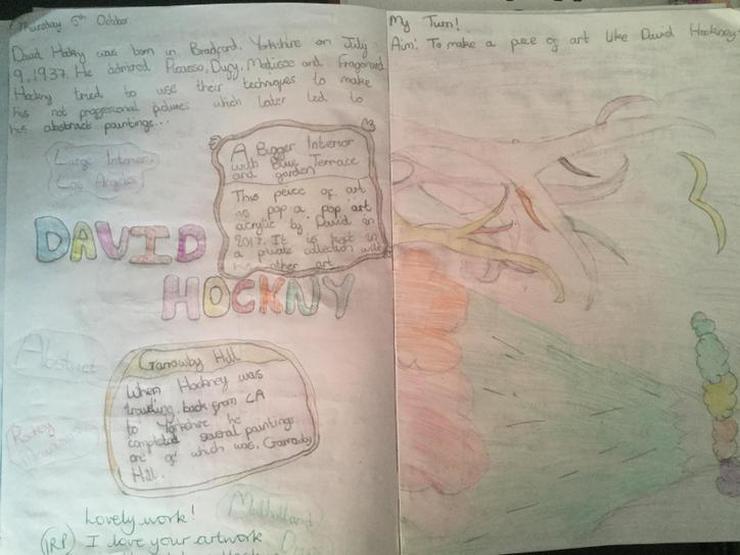 Thursday 5th October
David Hockny was born in Bradford, Yorkshire on July
9, 1937. He admired Picasso, Dufy, Matisse and Fragonard
Hockny tried to use their techniques to make
his not proffessional pictures which later led to
his abstract paintings...
Large Interior
Los Angeles
A Bigger Interior
with Blue Terrace
and garden
This peice of art
is pop a pop art
acrylic by David in
2017. It is kept in
a private collection with
his other art
DAVID
HOCKNY
Abstract
Garrowby Hill
When Hockney was
travelling back from LA
to Yorkshire he
completed several paintings
one of which was, Garrowby
Hill.
Rocky
Mountains
Mulholland
Drive
Lovely work!
(IRP) I love your artwork
My Turn!
Aim: To make a piece of art like David Hockney